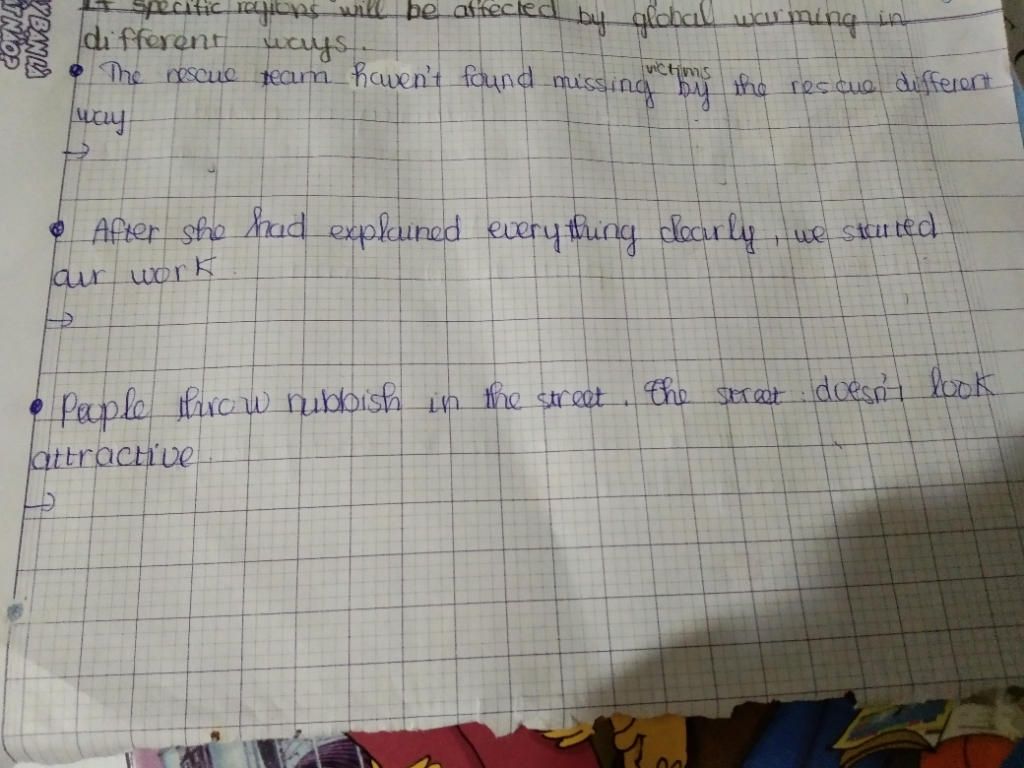 specific regions will be affected by global warming in
different ways.
The rescue team haven't found missing victims by the rescue different
way
→
After she had explained everything clearly, we started
our work.
→
People throw rubbish in the street. The street doesn't look
attractive.
→